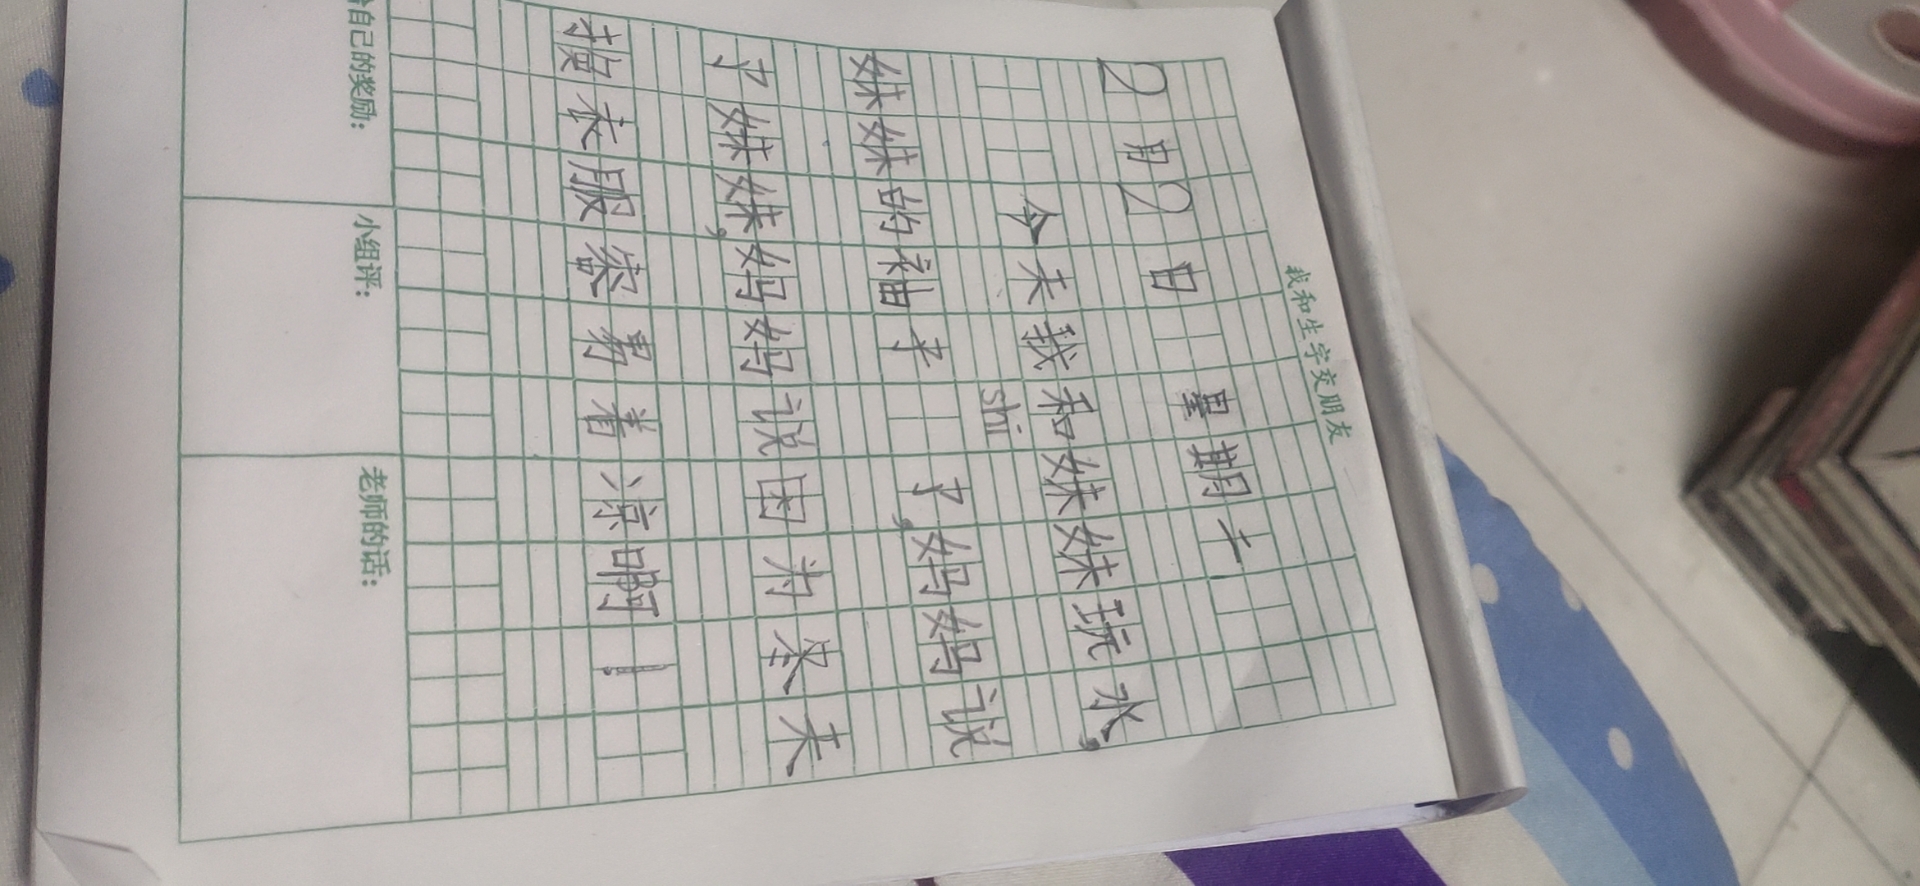 我和生字交朋友
2月2日 星期二
今天我和妹妹玩水,
shi
妹妹的袖子 了,妈妈说
了妹妹,妈妈说因为 天
换衣服容易着凉啊!
给自己的奖励: 小组评: 老师的话: